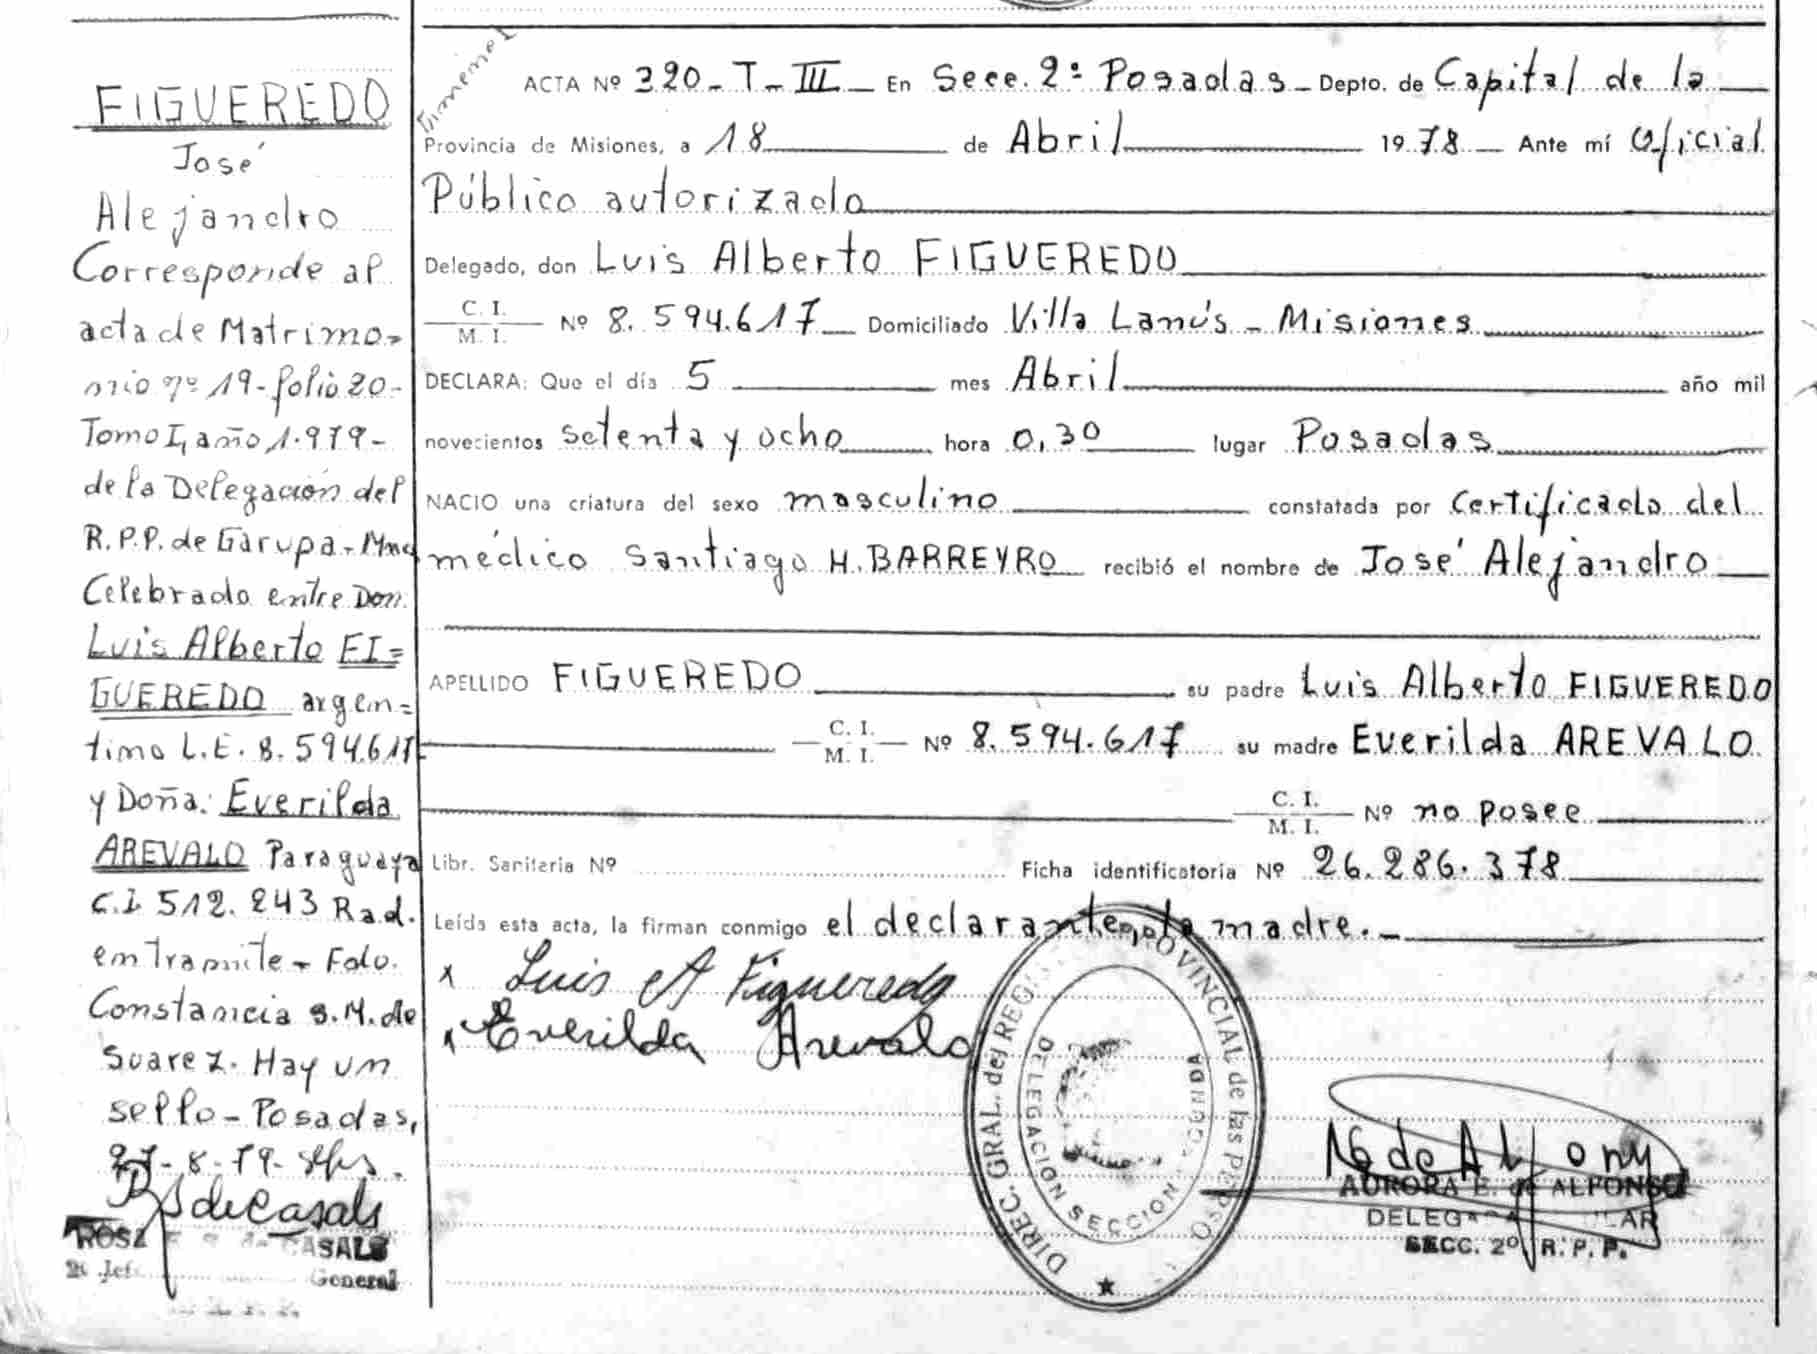 FIGUEREDO
José
Alejandro
Corresponde al
acta de Matrimo=
nio nº 19-folio 20-
Tomo I, año 1.979-
de la Delegación del
R.P.P. de Garupa-Mnes
Celebrado entre Don
Luis Alberto FI=
GUEREDO argen=
tino L.E. 8.594.617
y Doña: Everilda
AREVALO Paraguaya
C.I 512.243 Rad.
en Tramite - Fdo.
Constancia S.M. de
Suarez. Hay un
sello - Posadas,
27-8-79-
ROSA de CASALS
General
ACTA Nº 320-T-III- En Secc. 2ª Posadas - Depto. de Capital de la
Provincia de Misiones, a 18 de Abril 1978 - Ante mí Oficial
Público autorizado
Delegado, don Luis Alberto FIGUEREDO
C. I.
M. I. Nº 8.594.617 Domiciliado Villa Lanús - Misiones
DECLARA: Que el día 5 mes Abril año mil
novecientos setenta y ocho hora 0,30 lugar Posadas
NACIO una criatura del sexo masculino constatada por Certificado del
médico Santiago H. BARREYRO recibió el nombre de José Alejandro
APELLIDO FIGUEREDO su padre Luis Alberto FIGUEREDO
C. I.
M. I. Nº 8.594.617 su madre Everilda AREVALO
C. I.
M. I. Nº no posee
Libr. Sanitaria Nº Ficha identificatoria Nº 26.286.378
Leída esta acta, la firman conmigo el declarante, la madre.-
x Luis A Figueredo
x Everilda Arevalo
DIREC. GRAL. del REG. PROVINCIAL de las PERSO
DELEGACION SECCION SEGUNDA
AURORA E. de ALFONSO
SECC. 2º R. P. P.